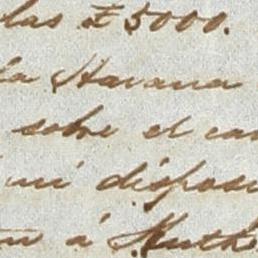 las £ 5000.
la Havana
sobre el can
mi disposi
á Kuth